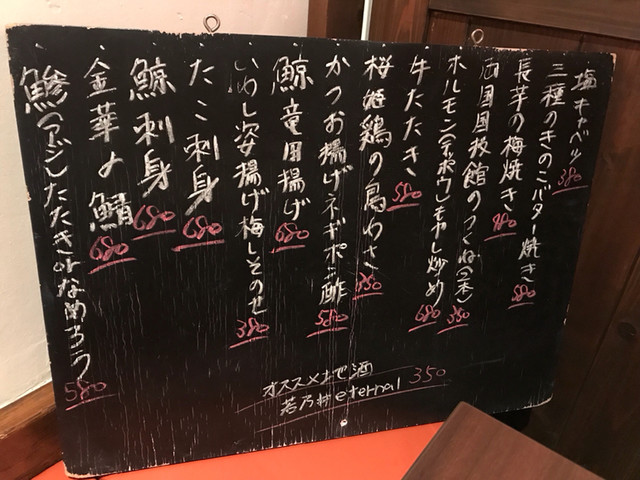 塩キャベツ 380
三種のきのこバター焼き 580
長芋の梅焼き 480
両国国技館のつくね(三本) 350
ホルモン(テッポウ)もやし炒め 680
牛たたき 580
桜姫鶏の鳥わさ 350
かつお揚げネギポン酢 580
鯨竜田揚げ 680
いわし姿揚げ梅しそのせ 380
たこ刺身 680
鯨刺身 680
金華の鯖 680
鯵(アジ)たたきorなめろう 580
オススメ地酒
若乃井eternal 350